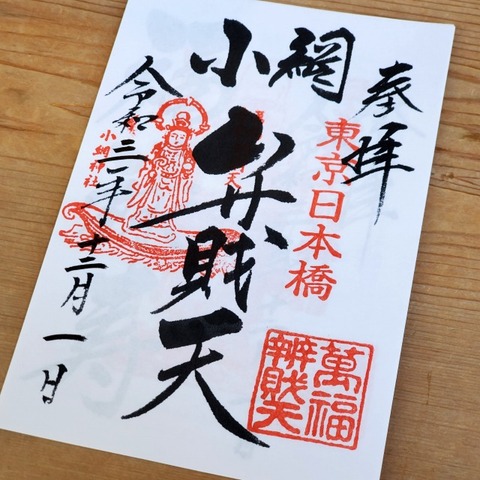 奉拝
東京日本橋
小網
弁財天
令和三年
十二月一日
小網神社
萬福
辨財天